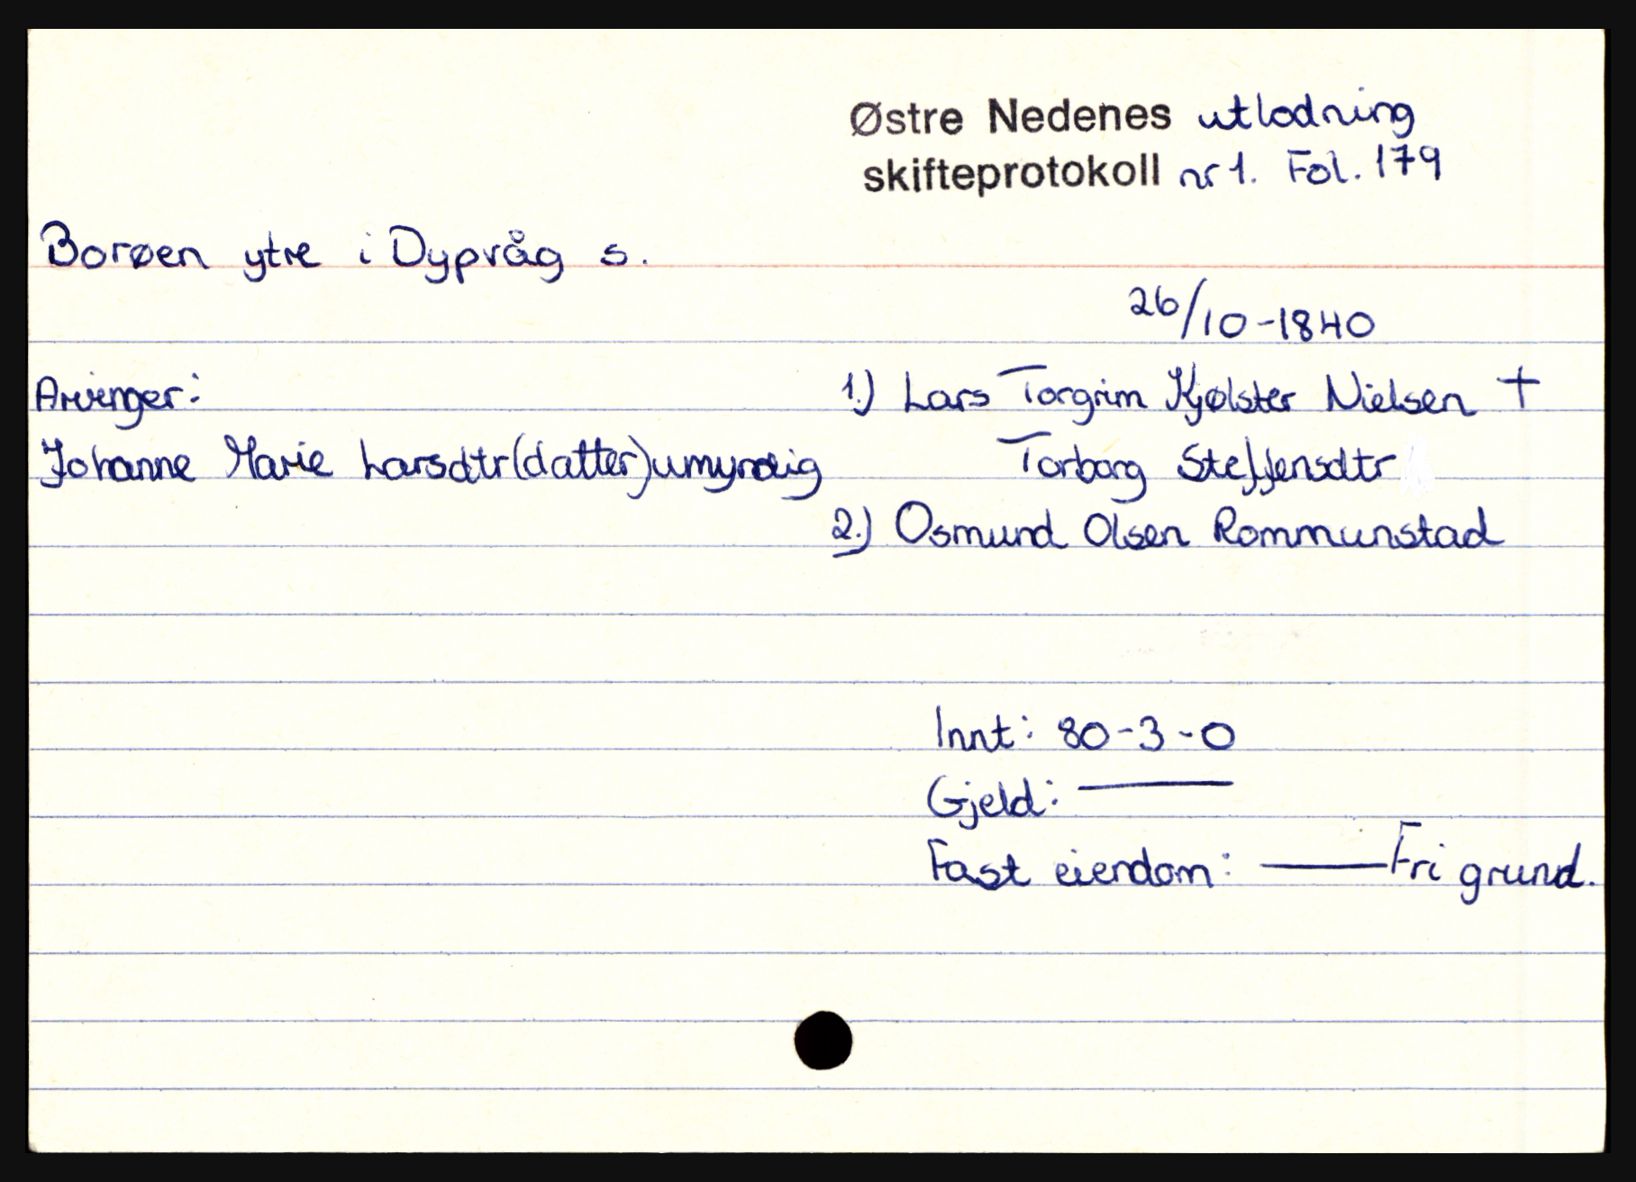 Østre Nedenes utlodning
skifteprotokoll nr 1. Fol. 179
Borøen ytre i Dypvåg s.
26/10-1840
Arvinger:
Johanne Marie Larsdtr(datter)umyndig
1.) Lars Torgrim Kjølster Nielsen †
Torborg Steffensdtr
2.) Osmund Olsen Rommunstad
Innt: 80-3-0
Gjeld: ——
Fast eiendom: ——Fri grund.